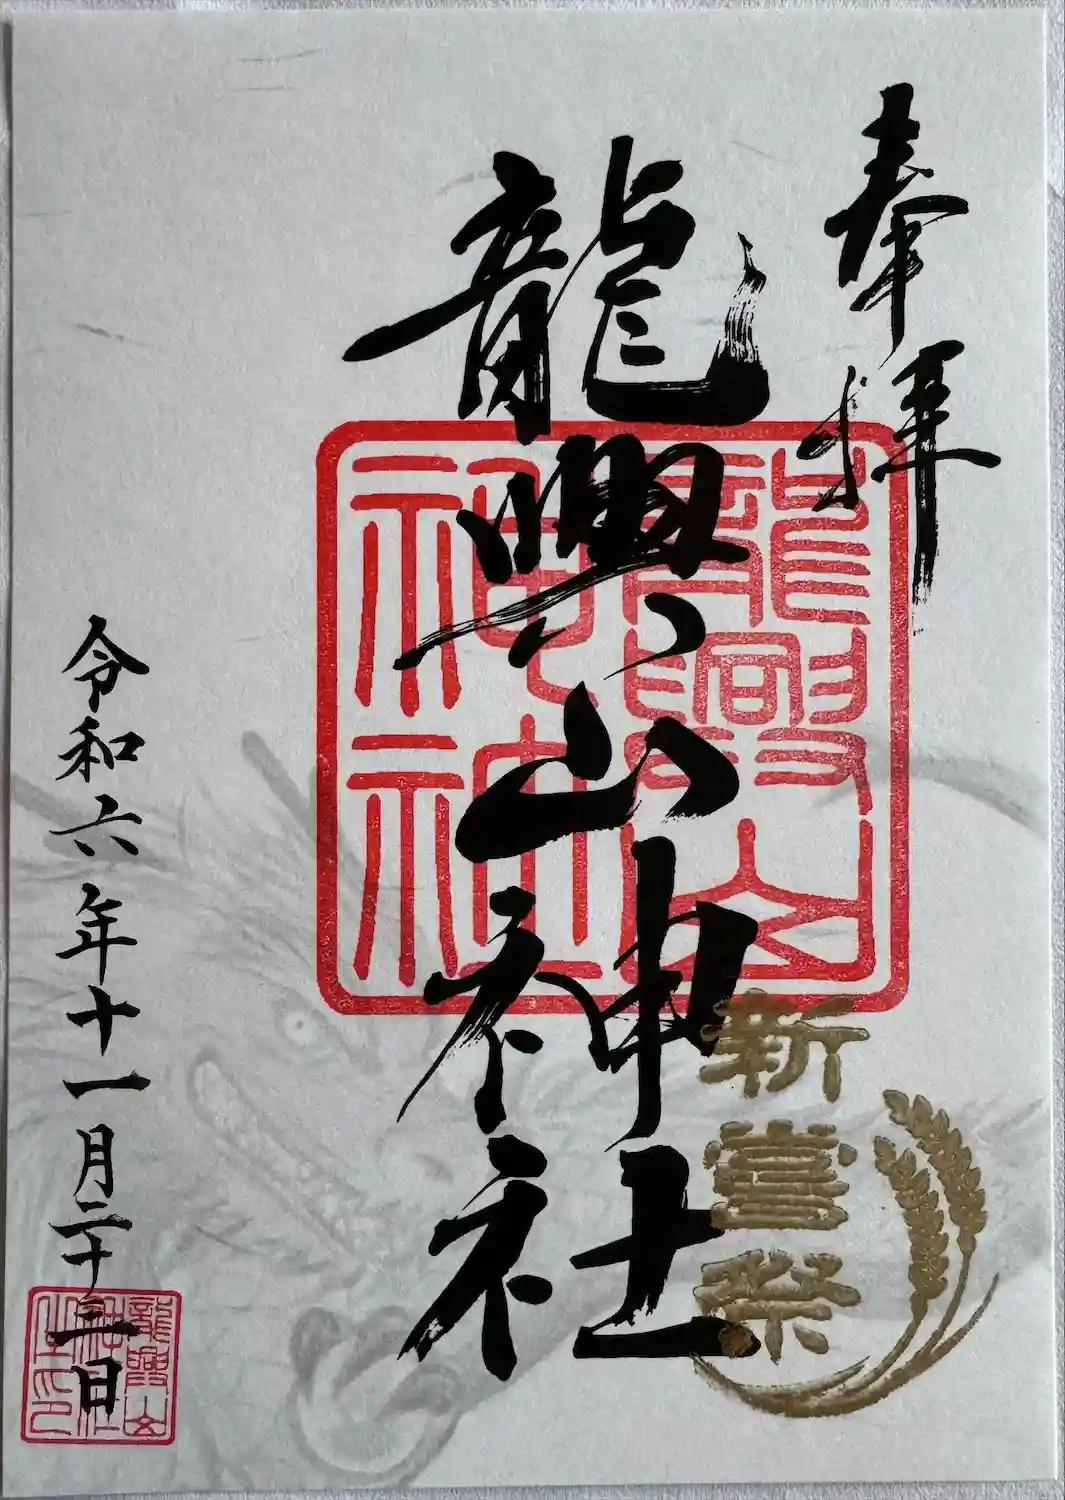 奉拝
龍興山神社
龍興山神社
新嘗祭
令和六年十一月二十三日
龍興山神社之印